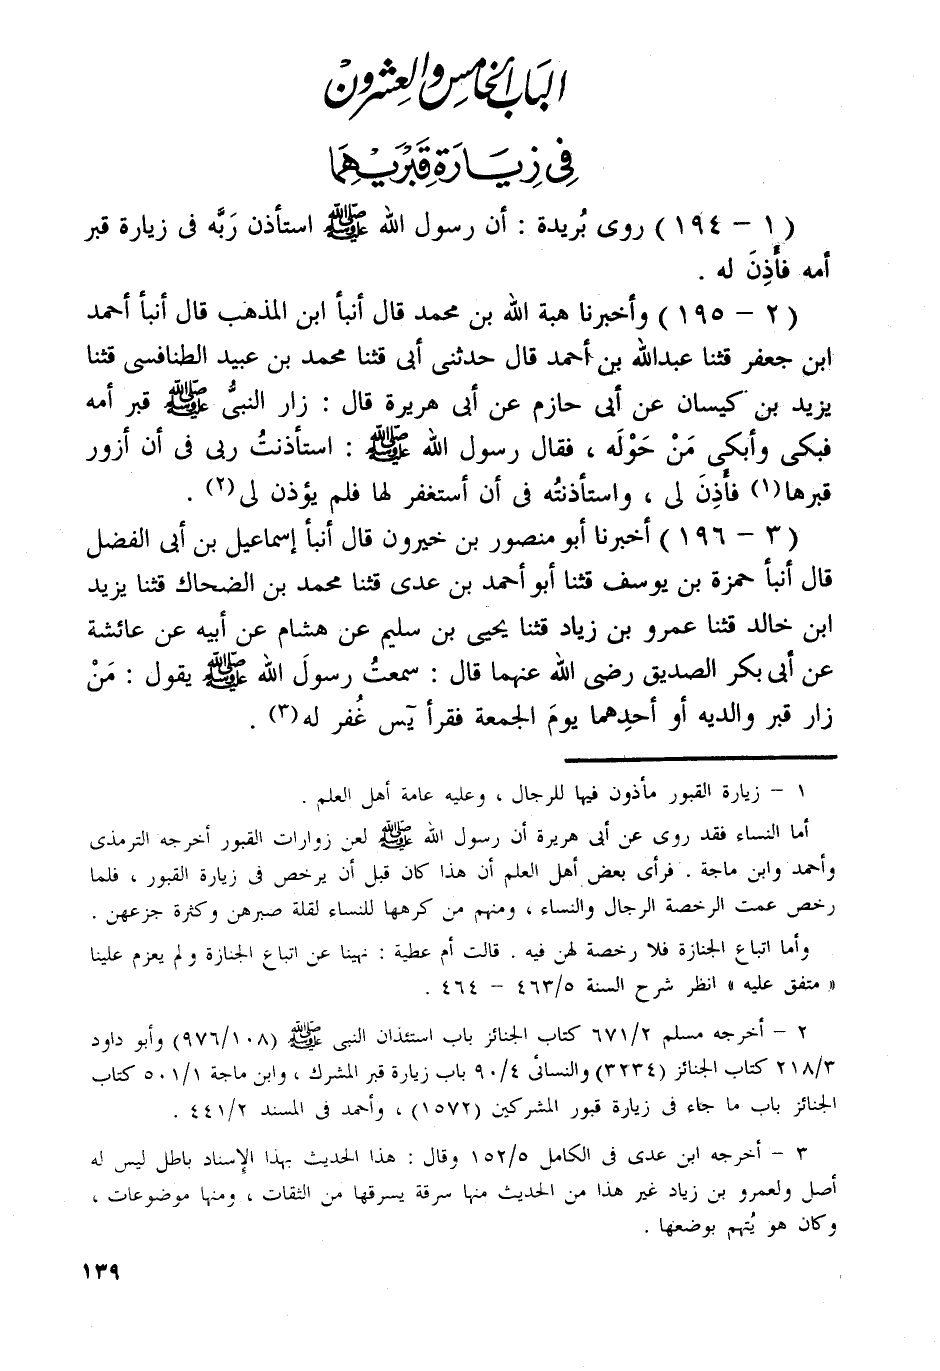 الباب الخامس والعشرون
فى زيارة قبريهما
( ١ – ١٩٤ ) روى بُريدة : أن رسول الله ﷺ استأذن رَبَّه فى زيارة قبر
أمه فأَذِنَ له .
( ٢ – ١٩٥ ) وأخبرنا هبة الله بن محمد قال أنبأ ابن المذهب قال أنبأ أحمد
ابن جعفر قثنا عبدالله بن أحمد قال حدثنى أبى قثنا محمد بن عبيد الطنافسى قثنا
يزيد بن كيسان عن أبى حازم عن أبى هريرة قال : زار النبىُّ ﷺ قبر أمه
فبكى وأبكى مَنْ حَوْلَه ، فقال رسول الله ﷺ : استأذنتُ ربى فى أن أزور
قبرها(١) فأَذِنَ لى ، واستأذنتُه فى أن أستغفر لها فلم يؤذن لى(٢) .
( ٣ – ١٩٦ ) أخبرنا أبو منصور بن خيرون قال أنبأ إسماعيل بن أبى الفضل
قال أنبأ حمزة بن يوسف قثنا أبو أحمد بن عدى قثنا محمد بن الضحاك قثنا يزيد
ابن خالد قثنا عمرو بن زياد قثنا يحيى بن سليم عن هشام عن أبيه عن عائشة
عن أبى بكر الصديق رضى الله عنهما قال : سمعتُ رسولَ الله ﷺ يقول : مَنْ
زار قبر والديه أو أحدِهما يومَ الجمعة فقرأ يّس غُفر له(٣) .
١ – زيارة القبور مأذون فيها للرجال ، وعليه عامة أهل العلم .
أما النساء فقد روى عن أبى هريرة أن رسول الله ﷺ لعن زوارات القبور أخرجه الترمذى
وأحمد وابن ماجة . فرأى بعض أهل العلم أن هذا كان قبل أن يرخص فى زيارة القبور ، فلما
رخص عمت الرخصة الرجال والنساء ، ومنهم من كرهها للنساء لقلة صبرهن وكثرة جزعهن .
وأما اتباع الجنازة فلا رخصة لهن فيه . قالت أم عطية : نهينا عن اتباع الجنازة ولم يعزم علينا
« متفق عليه » انظر شرح السنة ٤٦٣/٥ – ٤٦٤ .
٢ – أخرجه مسلم ٦٧١/٢ كتاب الجنائز باب استئذان النبى ﷺ (٩٧٦/١٠٨) وأبو داود
٢١٨/٣ كتاب الجنائز (٣٢٣٤) والنسائى ٩٠/٤ باب زيارة قبر المشرك ، وابن ماجة ٥٠١/١ كتاب
الجنائز باب ما جاء فى زيارة قبور المشركين (١٥٧٢) ، وأحمد فى المسند ٤٤١/٢ .
٣ – أخرجه ابن عدى فى الكامل ١٥٢/٥ وقال : هذا الحديث بهذا الإسناد باطل ليس له
أصل ولعمرو بن زياد غير هذا من الحديث منها سرقة يسرقها من الثقات ، ومنها موضوعات ،
وكان هو يُتهم بوضعها .
١٣٩